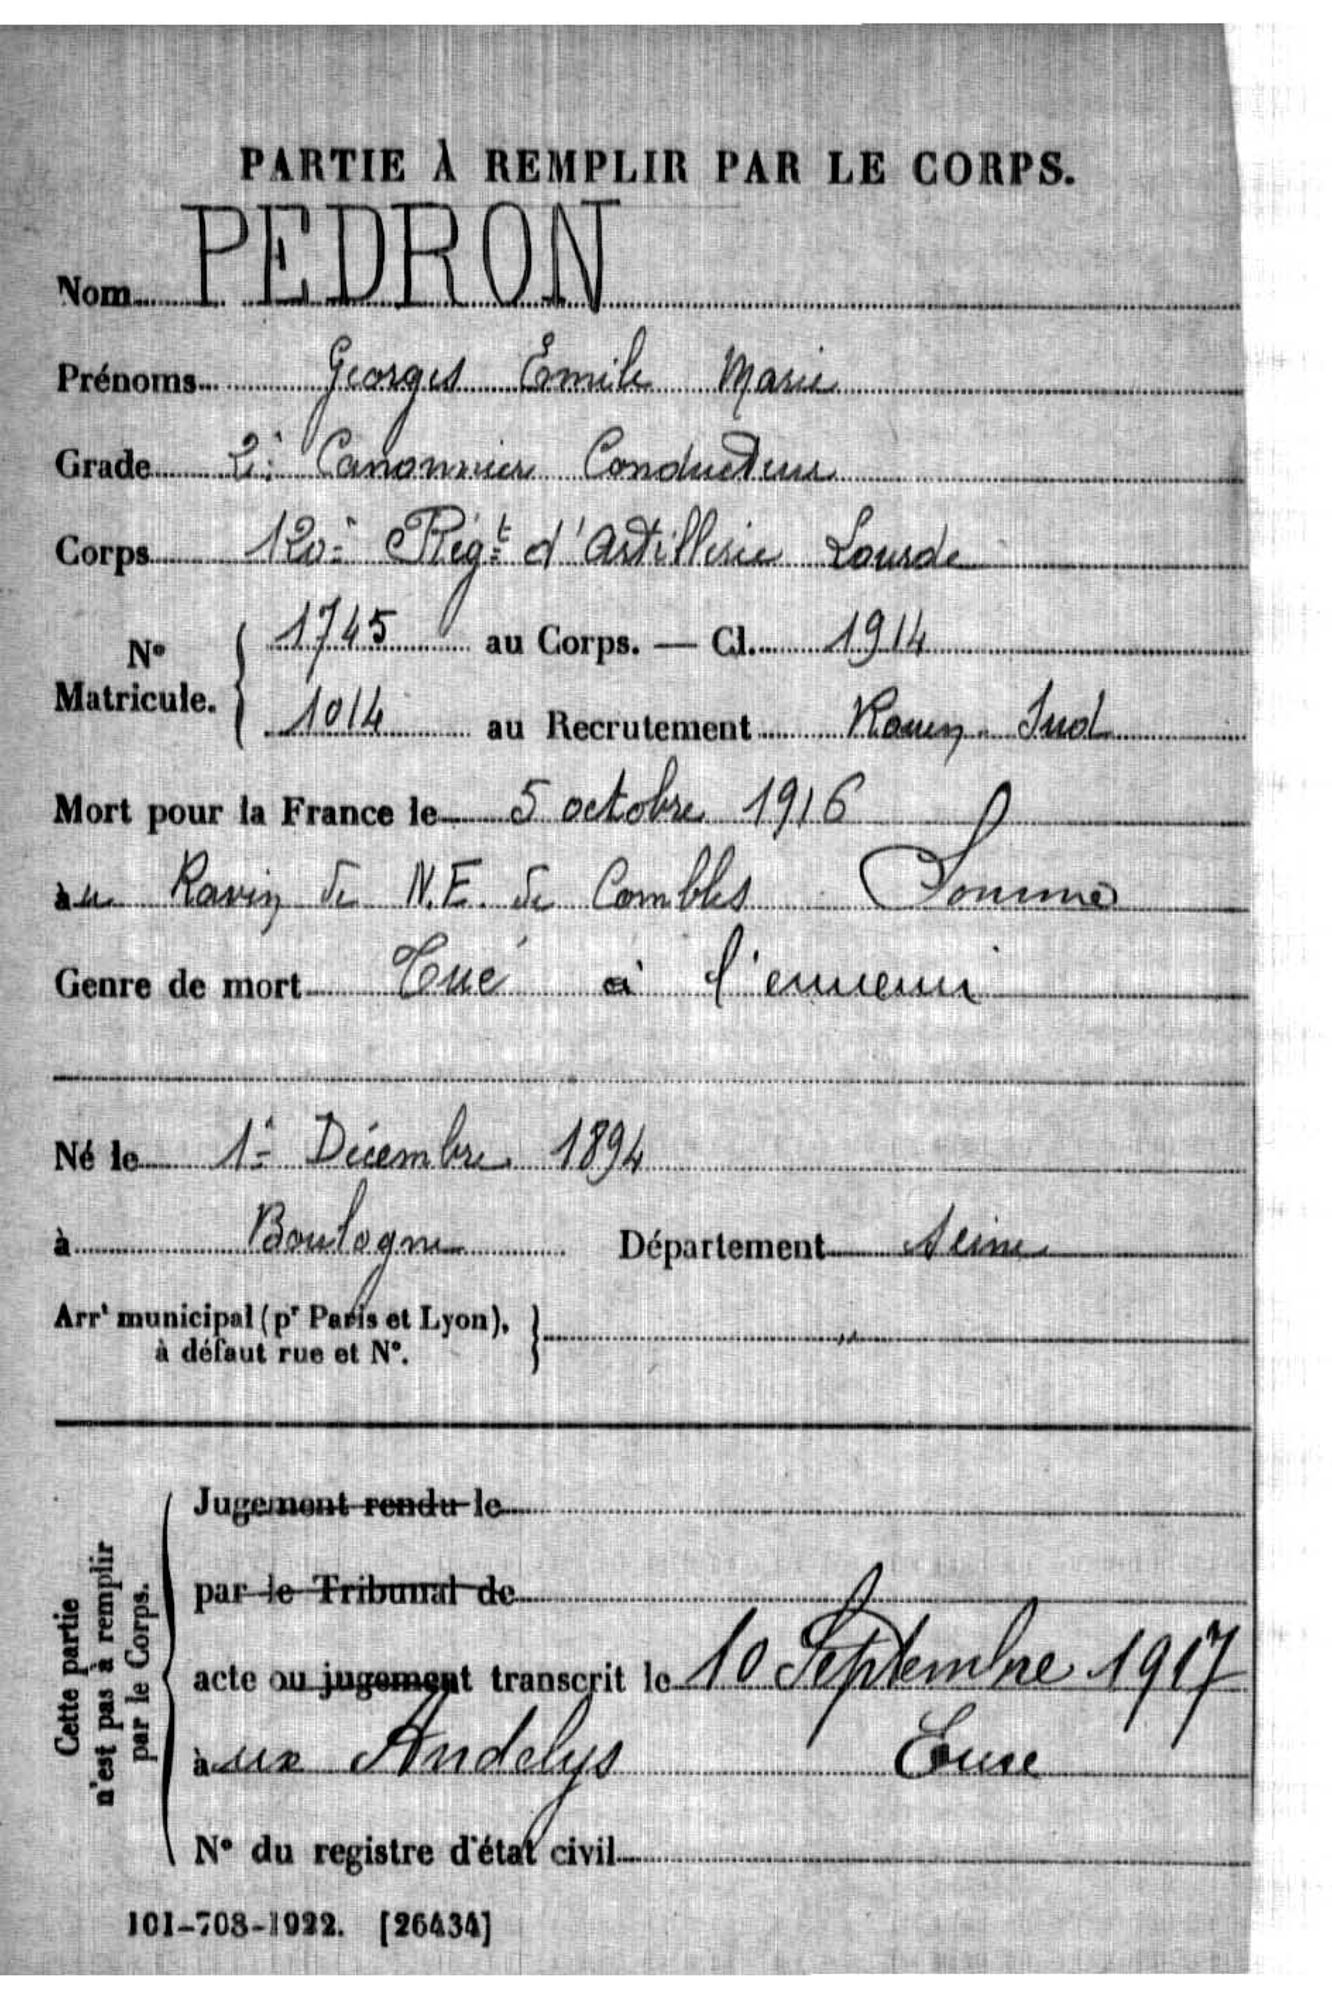 PARTIE À REMPLIR PAR LE CORPS.
Nom PEDRON
Prénoms Georges Emile Marie
Grade 2e Canonnier Conducteur
Corps 120e Régt d'Artillerie Lourde
No Matricule. { 1745 au Corps. — Cl. 1914
1014 au Recrutement Rouen Sud
Mort pour la France le 5 octobre 1916
au Ravin de N.E. de Combles Somme
Genre de mort Tué à l'ennemi
Né le 1er Décembre 1894
à Boulogne Département Seine
Arrt municipal (pr Paris et Lyon), } "
à défaut rue et N°.
Cette partie
n'est pas à remplir
par le Corps.
Jugement rendu le
par le Tribunal de
acte ou jugement transcrit le 10 Septembre 1917
aux Andelys Eure
N° du registre d'état civil
101-708-1922. [26434]